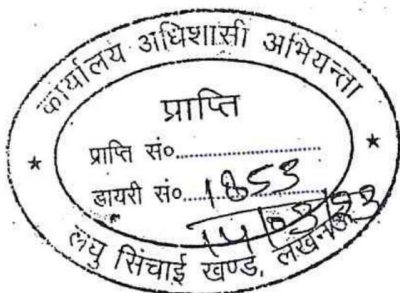 कार्यालय अधिशासी अभियन्ता
प्राप्ति
प्राप्ति सं०....................
डायरी सं०. 1853
14/03/23
लघु सिंचाई खण्ड, लखनऊ